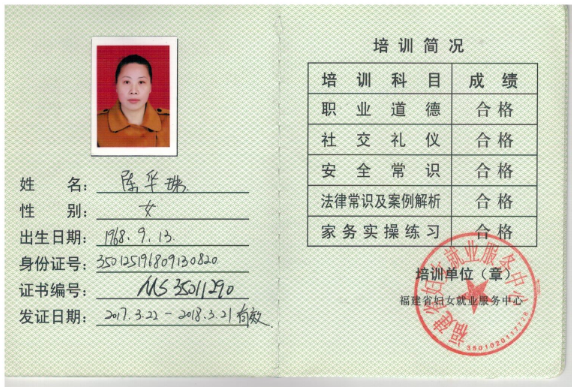 姓 名：陈华瑞
性 别：女
出生日期：1968.9.13.
身份证号：350125196809130820
证书编号：MS35011290
发证日期：2017.3.22-2018.3.21有效
培训简况
培训科目 成绩
职业道德 合格
社交礼仪 合格
安全常识 合格
法律常识及案例解析 合格
家务实操练习 合格
培训单位（章）
福建省妇女就业服务中心
福建省妇女就业服务中心